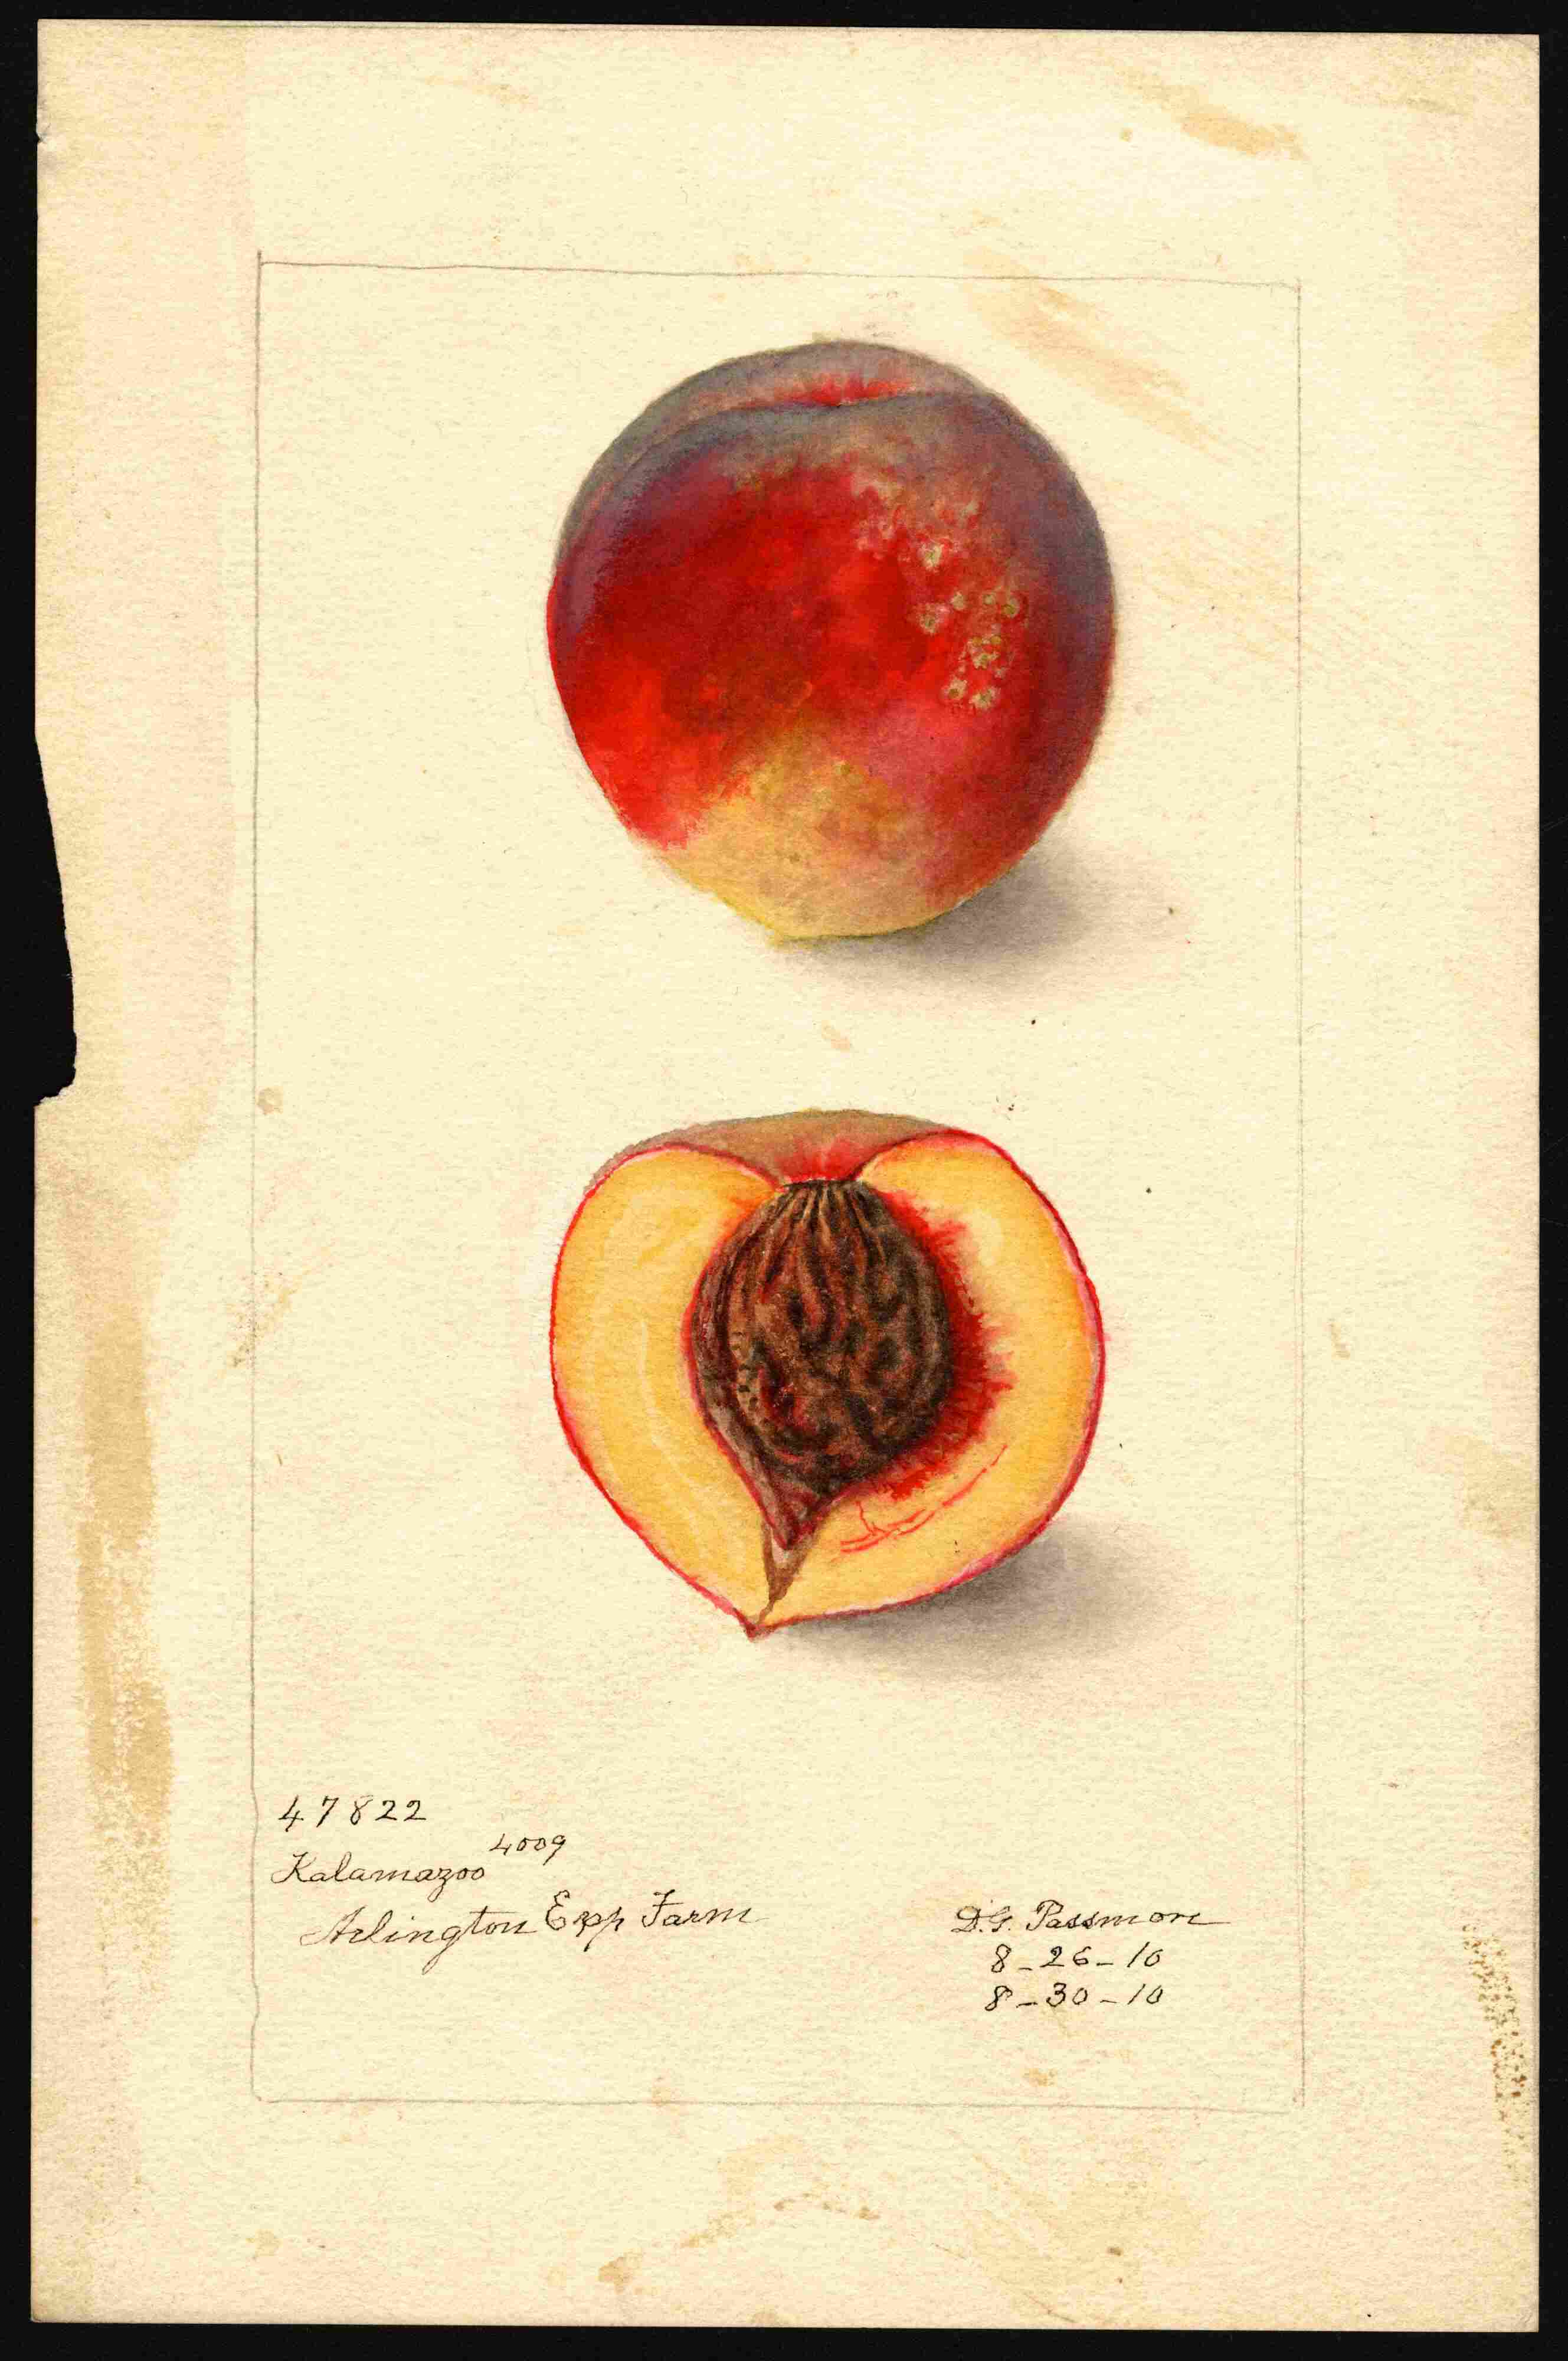 47822
4009
Kalamazoo
Arlington Exp Farm
D.G. Passmore
8-26-10
8-30-10